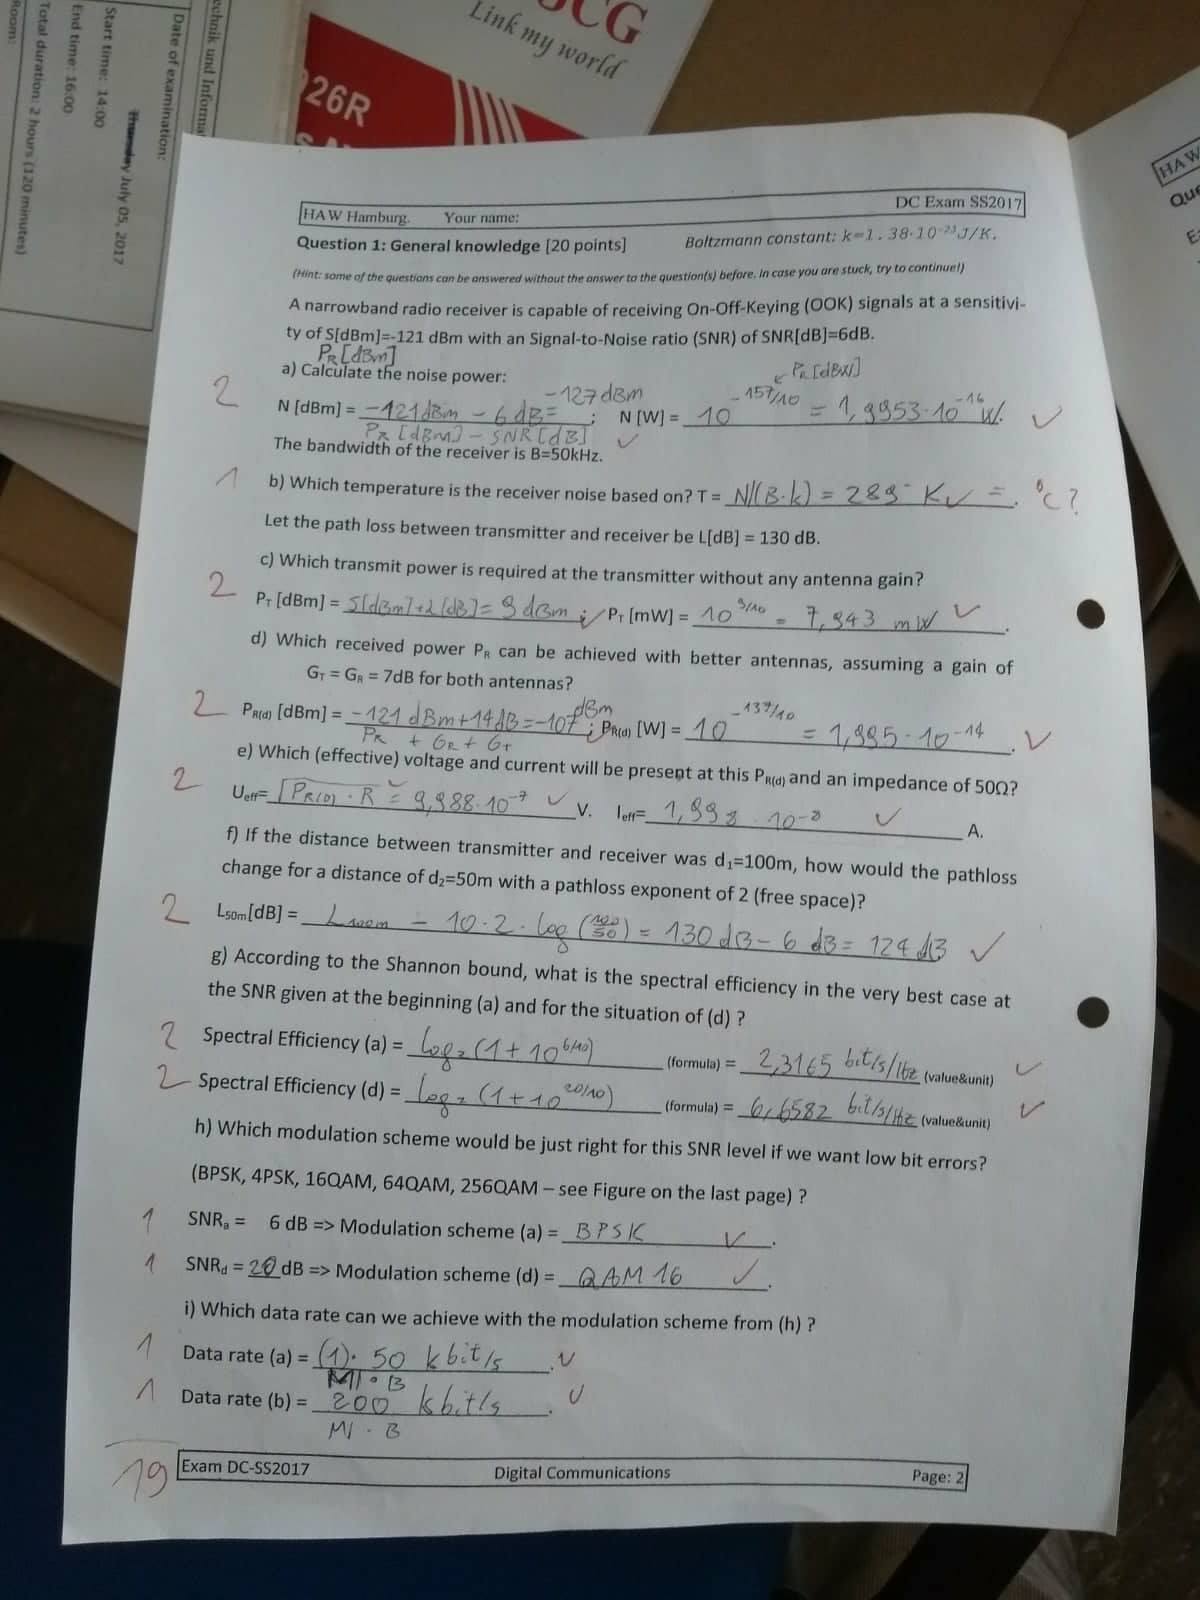 echnik und Informa
Date of examination:
Thursday July 05, 2017
Start time: 14:00
End time: 16:00
Total duration: 2 hours (120 minutes)
Room:
CG
Link my world
926R
HAW
Que
HAW Hamburg. Your name: DC Exam SS2017
Question 1: General knowledge [20 points] Boltzmann constant: k=1.38·10⁻²³J/K.
(Hint: some of the questions can be answered without the answer to the question(s) before. In case you are stuck, try to continue!)
A narrowband radio receiver is capable of receiving On-Off-Keying (OOK) signals at a sensitivi-
ty of S[dBm]=-121 dBm with an Signal-to-Noise ratio (SNR) of SNR[dB]=6dB.
PR[dBm]
a) Calculate the noise power: PR[dBW]
2 N [dBm] = -121dBm - 6dB= -127dBm ; N [W] = 10^-157/10 = 1,9953·10⁻¹⁶ W. ✓
PR [dBm] - SNR[dB] ✓
The bandwidth of the receiver is B=50kHz.
1 b) Which temperature is the receiver noise based on? T = N/(B·k) = 289 K ✓ = . °C?
Let the path loss between transmitter and receiver be L[dB] = 130 dB.
c) Which transmit power is required at the transmitter without any antenna gain?
2 PT [dBm] = S[dBm]+L[dB]= 9dBm ; ✓ PT [mW] = 10^9/10 = 7,943 mW ✓ .
d) Which received power PR can be achieved with better antennas, assuming a gain of
GT = GR = 7dB for both antennas?
2 PR(d) [dBm] = -121 dBm+14dB=-107 dBm ; PR(d) [W] = 10^-137/10 = 1,995·10⁻¹⁴ . ✓
PR + GR + GT
e) Which (effective) voltage and current will be present at this PR(d) and an impedance of 50Ω?
2 Ueff= √PR(D)·R = 9,988·10⁻⁷ ✓ V. Ieff= 1,998·10⁻⁸ ✓ A.
f) If the distance between transmitter and receiver was d₁=100m, how would the pathloss
change for a distance of d₂=50m with a pathloss exponent of 2 (free space)?
2 L50m[dB] = L100m - 10·2·log(100/50) = 130dB- 6 dB= 124 dB ✓
g) According to the Shannon bound, what is the spectral efficiency in the very best case at
the SNR given at the beginning (a) and for the situation of (d) ?
2 Spectral Efficiency (a) = log₂(1+10^6/10) (formula) = 2,3165 bit/s/Hz (value&unit) ✓
2 Spectral Efficiency (d) = log₂(1+10^20/10) (formula) = 6,6582 bit/s/Hz (value&unit) ✓
h) Which modulation scheme would be just right for this SNR level if we want low bit errors?
(BPSK, 4PSK, 16QAM, 64QAM, 256QAM – see Figure on the last page) ?
1 SNRa = 6 dB => Modulation scheme (a) = BPSK ✓ .
1 SNRd = 20 dB => Modulation scheme (d) = QAM 16 ✓ .
i) Which data rate can we achieve with the modulation scheme from (h) ?
1 Data rate (a) = (1)· 50 kbit/s . ✓
MI · B
1 Data rate (b) = 200 kbit/s . ✓
MI · B
19
Exam DC-SS2017 Digital Communications Page: 2